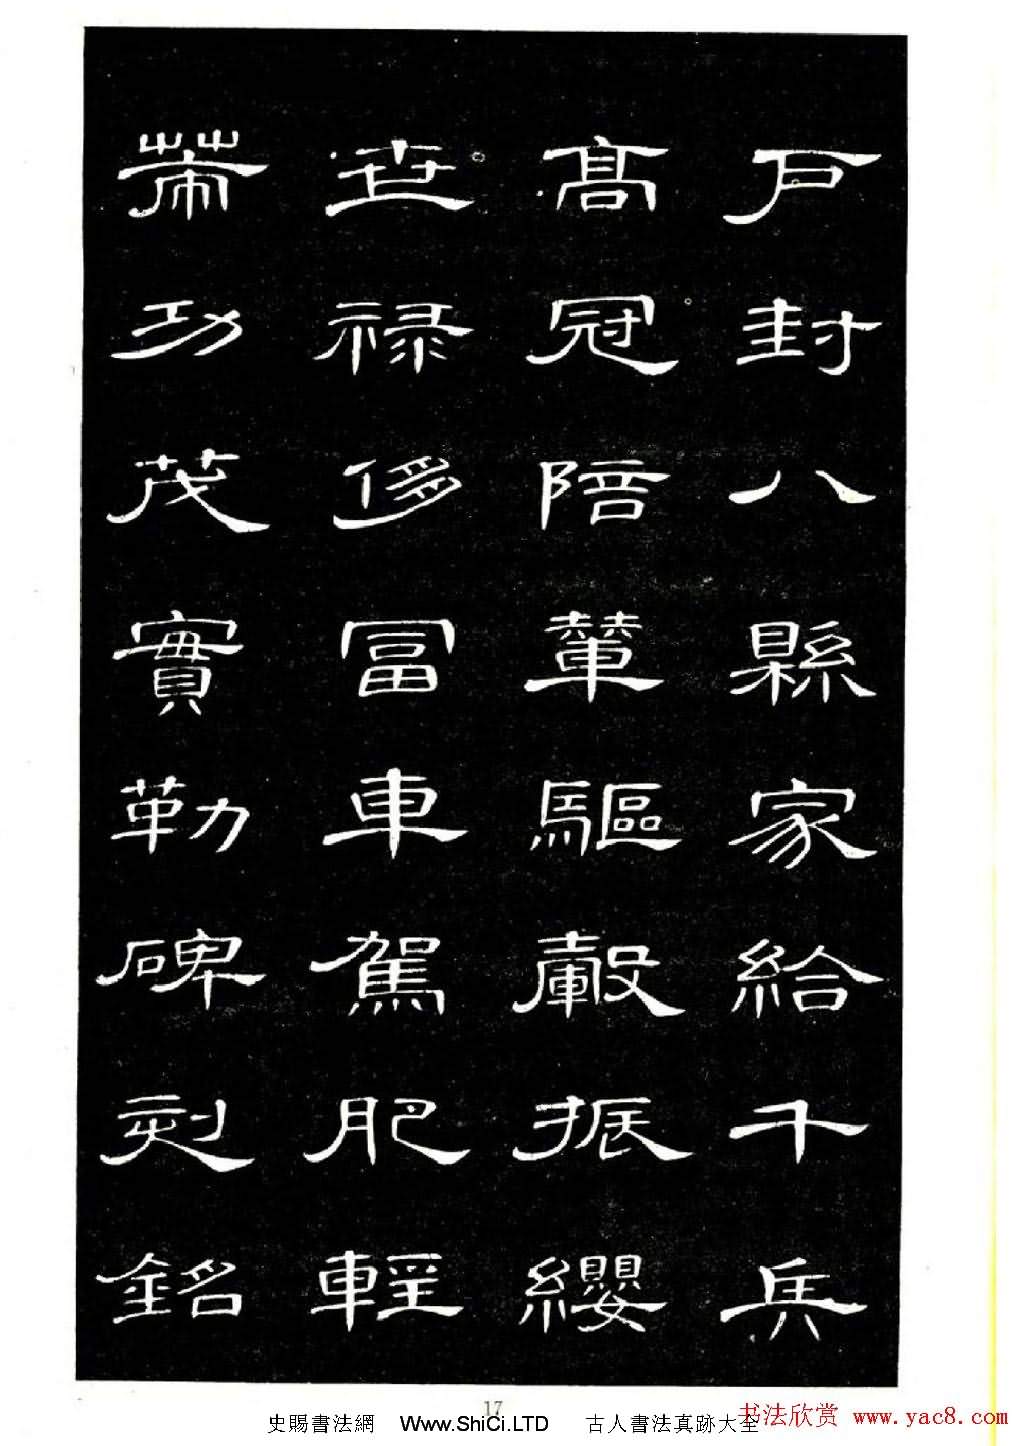 户封八縣家給千兵
高冠陪輦驅轂振纓
世禄侈富車駕肥輕
策功茂實勒碑刻銘
17
史賜書法網 Www.ShiCi.LTD 古人書法真跡大全
书法欣赏 www.yac8.com